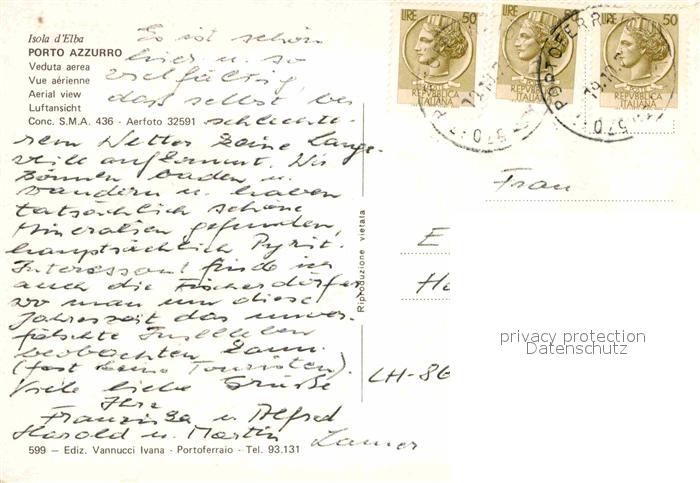 Isola d'Elba
PORTO AZZURRO
Veduta aerea
Vue aérienne
Aerial view
Luftansicht
Conc. S.M.A. 436 - Aerfoto 32591
Es ist schön
hier u. so
vielfältig,
daß selbst bei
schlechte-
rem Wetter keine Lange-
weile aufkommt. Wir
können baden u.
wandern u. haben
tatsächlich schöne
Mineralien gefunden,
hauptsächlich Pyrit.
Interessant finde ich
auch die Fischerdörfer
wo man um diese
Jahreszeit das unver-
fälschte Inselleben
beobachten kann.
(fast keine Touristen).
Viele liebe Grüße
Ihre
Franziska u. Alfred
Harold u. Martin
599 - Ediz. Vannucci Ivana - Portoferraio - Tel. 93.131
Riproduzione vietata
LIRE 50
POSTE
REPVBBLICA
ITALIANA
LIRE 50
REPVBBLICA
ITALIANA
LIRE 50
REPVBBLICA
ITALIANA
Frau
E
CH-86
privacy protection
Datenschutz